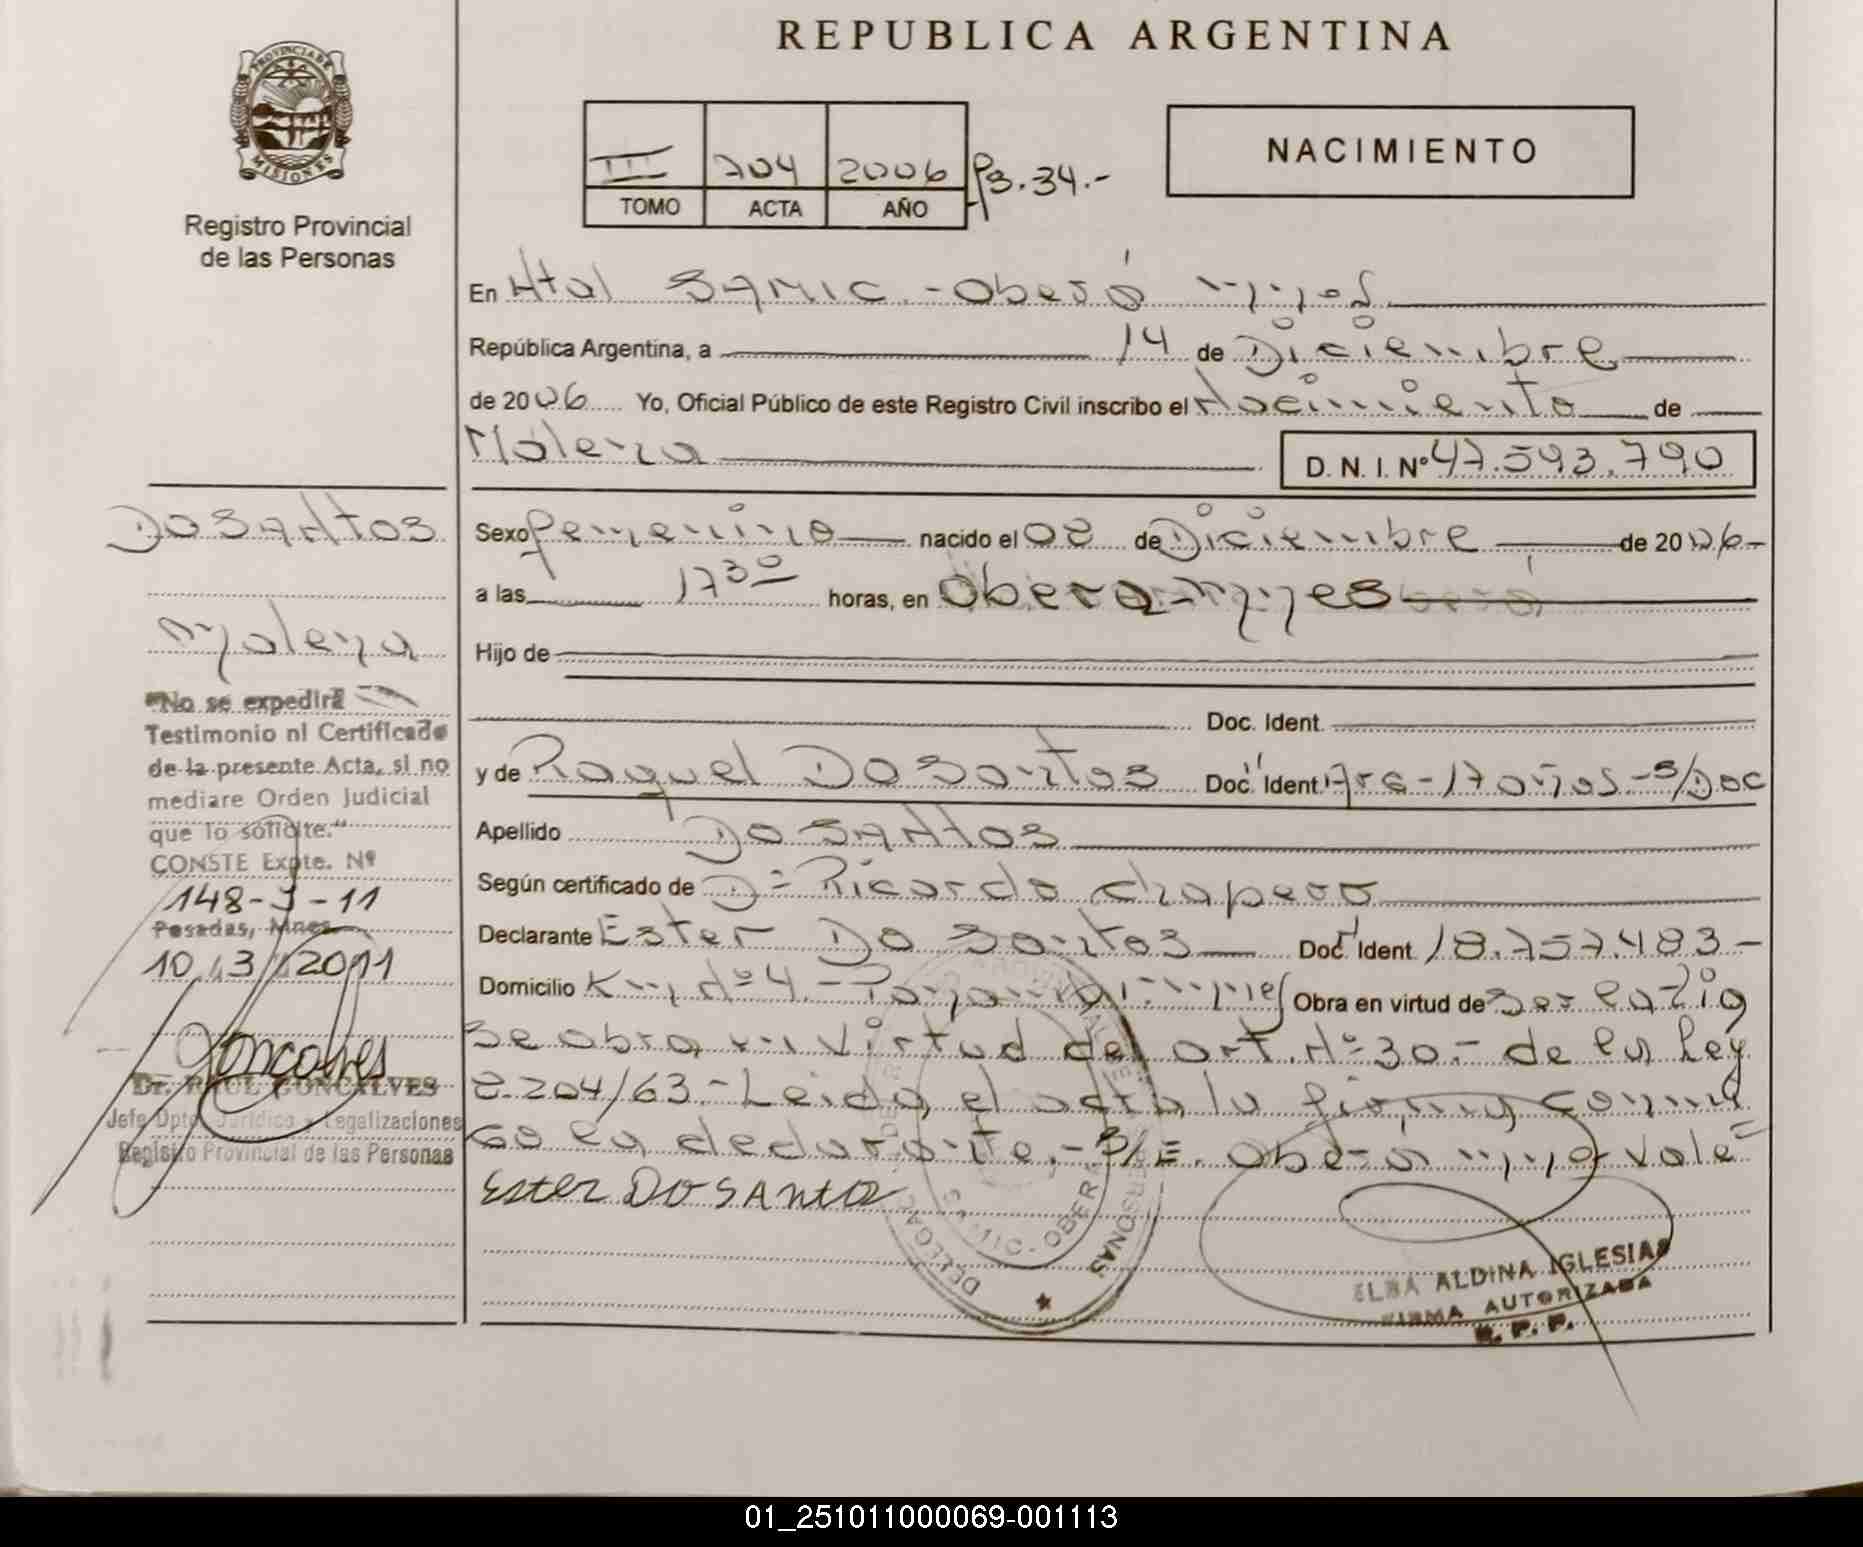 REPUBLICA ARGENTINA
PROVINCIA DE MISIONES
Registro Provincial
de las Personas
III 704 2006 Pg. 34.-
TOMO ACTA AÑO
NACIMIENTO
En Htal SAMIC - Oberá Mnes
República Argentina, a 14 de Diciembre
de 2006 Yo, Oficial Público de este Registro Civil inscribo el Nacimiento de
Malena D. N. I. Nº 47.593.790
Do SANtos
Malena
Sexo femenino nacido el 08 de Diciembre de 2006-
a las 17 30 horas, en Oberá-Mnes
Hijo de
Doc. Ident.
y de Raquel Do Santos Doc. Ident. Arg-17 años-S/Doc
Apellido Do SANtos
Según certificado de Dr Ricardo
Declarante Ester Do Santos Doc. Ident. 18.757.483-
Domicilio Km Nº 4.- Obra en virtud de
se obra en virtud del art. Nº 30.- de la Ley
8.204/63.- Leida el acta la firma conmi
go la declarante.- S/E. Oberá Vale
Ester DO SANtos
"No se expedirá
Testimonio ni Certificado
de la presente Acta, si no
mediare Orden Judicial
que lo solicite."
CONSTE Expte. Nº
148- -11
Posadas, Mnes
10/3/2011
Goncalves
Dr. RAUL GONCALVES
Jefe Dpto. Jurídico y Legalizaciones
Registro Provincial de las Personas
SAMIC - OBERA
ELBA ALDINA IGLESIAS
FIRMA AUTORIZADA
R. P. P.
01_251011000069-001113